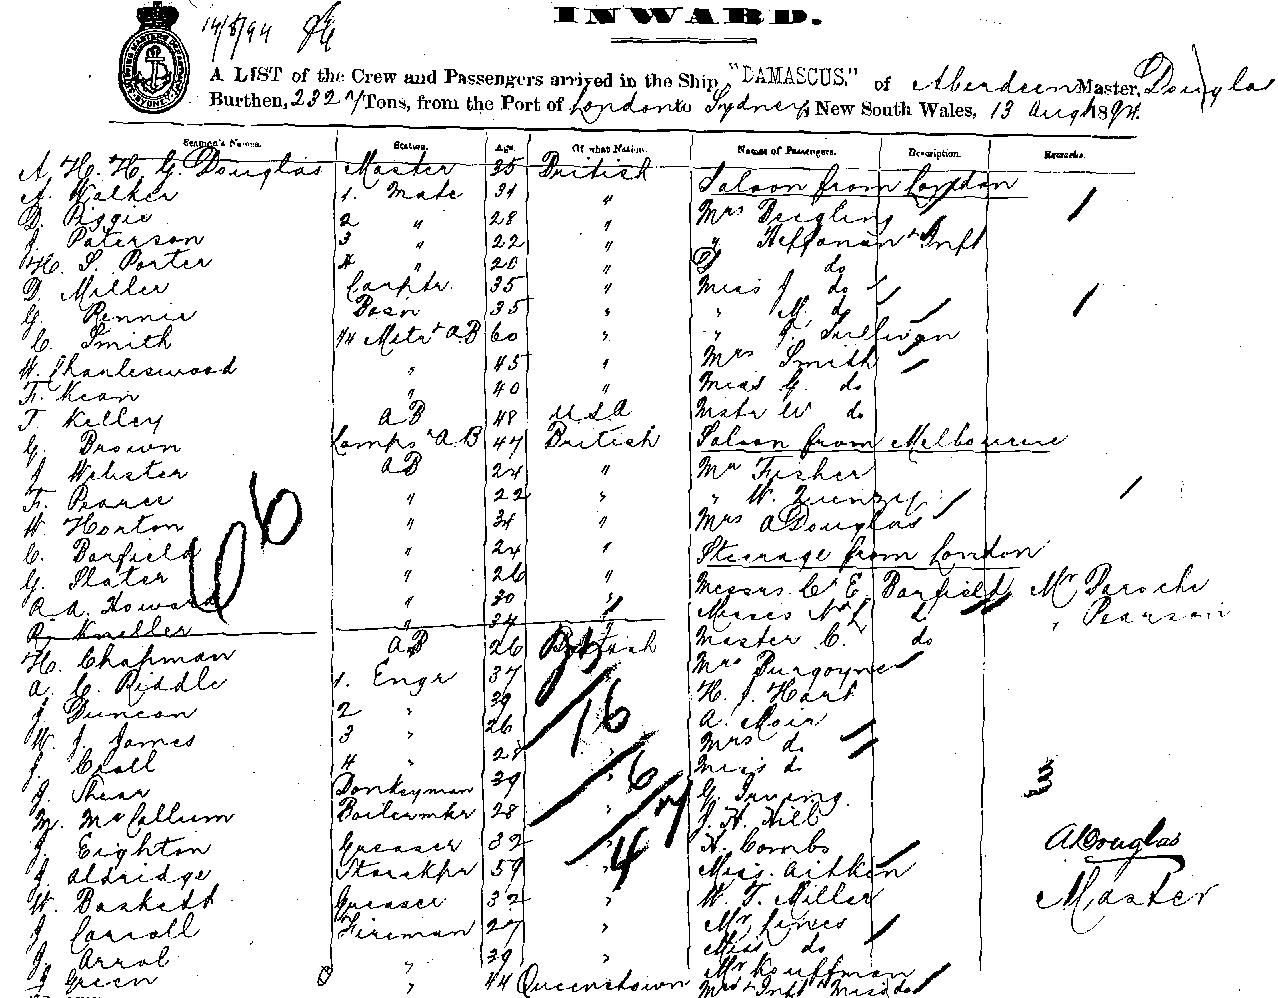 14/8/94
INWARD.
A LIST of the Crew and Passengers arrived in the Ship "DAMASCUS." of Aberdeen Master, Douglas
Burthen, 232 Tons, from the Port of London to Sydney, New South Wales, 13 Augt 1894.
Seamen's Names. Station. Age. Of what Nation. Names of Passengers. Description. Remarks.
A. H. H. G. Douglas Master 35 British Saloon from London
A. Walker 1. Mate 31 " Mrs
D. Piggie 2 " 28 " " Heffonan + Inft
J. Paterson 3 " 22 " do
H. S. Porter 4 " 20 " Miss J do
D. Miller Carptr. 35 " " M. do
G. Rennie Bosn 35 " " J. Sullivan
C. Smith Mstr + AB 60 " Mrs Smith
H. Charleswood " 45 " Miss G. do
F. Kean " 40 " Mastr W do
T Kelley AB 48 USA Saloon from Melbourne
G. Brown Lamps + AB 47 British Mr Fisher
J Webster AB 24 " " W.
F. Pearce " 22 " Mrs A Douglas
W. Horton " 34 " Steerage from London
C. Barfield " 24 " Messrs C E. Barfield Mr Paroche
G. Slater " 26 " Misses do " Pearson
A. A. Howard " 30 " Master C. do
R. Kneller " 34 " Mrs Burgoyne
H. Chapman AB 26 British H. J. Hart
A. C. Riddle 1. Engr 37 A. Moir
J Duncan 2 " 39 Mrs do
W. J. James 3 " 26 Miss do
J. Croll 4 " 28 G. Irving.
J. Shear Donkeyman 39 " J. H. Hill
M. McCallum Boilermkr 28 " H. Combs
J Eighton Greaser 32 Miss. Aitken
J Aldridge Storekpr 59 " W. T. Miller
W. Baskett Greaser 32 " Mr Jines
J Carroll Fireman 27 " Miss do
J. Arrol " 39 " Mr Kauffman
J Green " 44 Queenstown Mrs + Inft + Miss do
66
16
6
4
3
A Douglas
Master